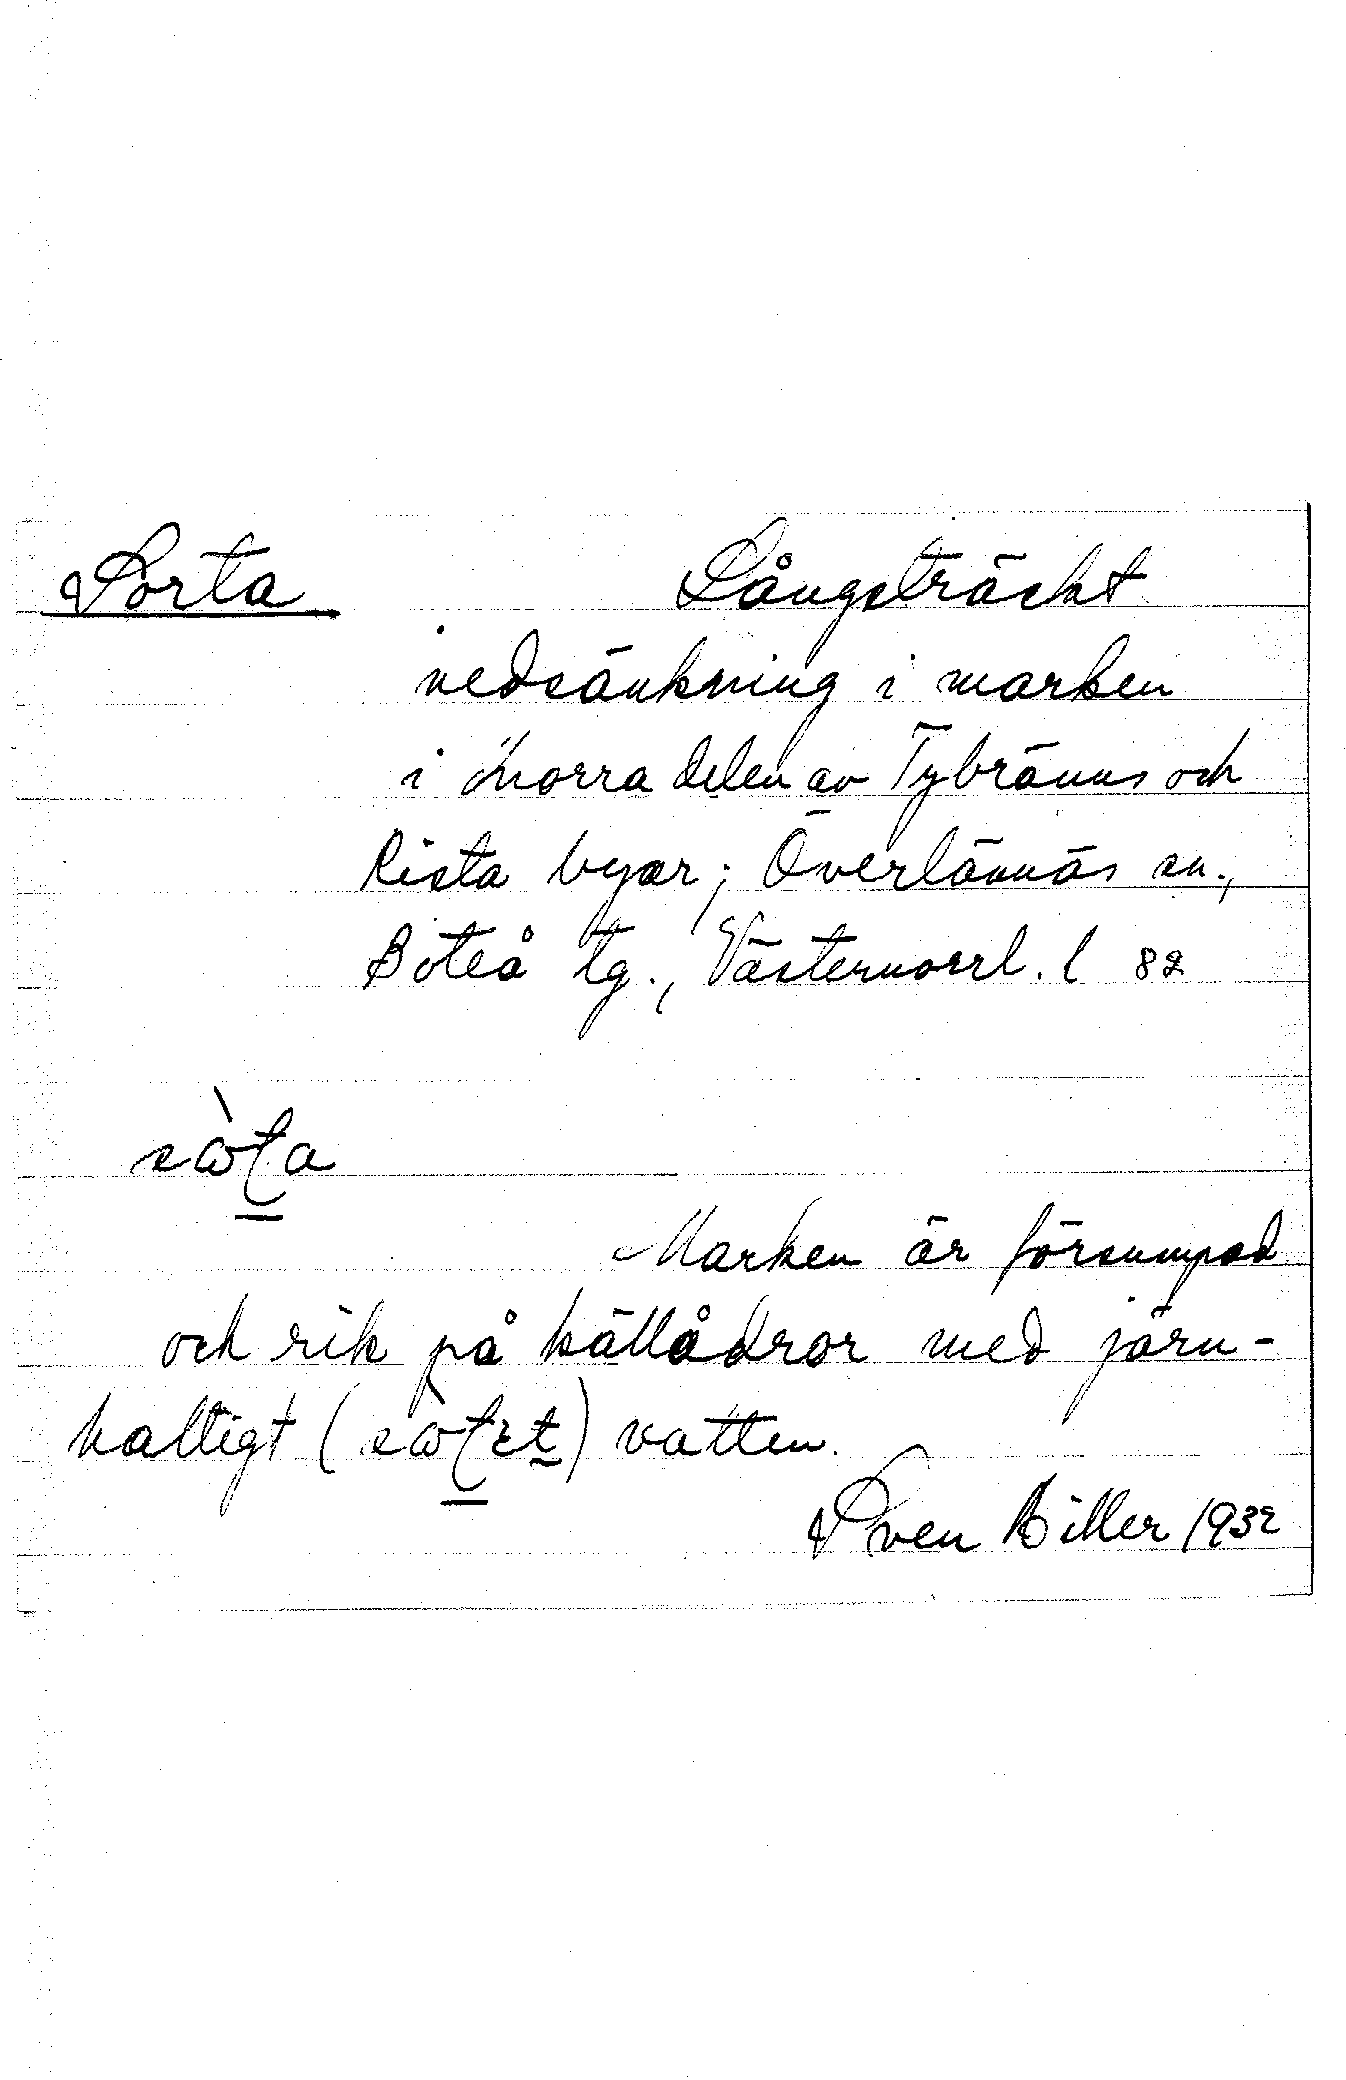 Sorta Långsträckt
nedsänkning i marken
i norra delen av Tybränns och
Rista byar; Överlännäs sn.,
Boteå tg., Västernorrl. l 82
Marken är försumpad
och rik på källådror med järn-
haltigt ( ) vatten.
Sven Biller 1932